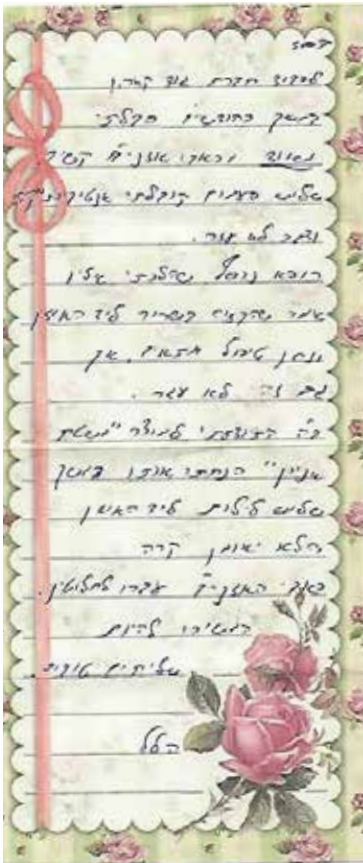 בס"ד
לכבוד חברת גוד קארין
במשך כחודשיים סבלתי
וכאבי אוזניים קשים
שלוש פעמים קיבלתי אנטיביוטיקה
ודבר לא עזר.
רופא שהלכתי אליו
אמר שהקזת השריר ליד האוזן
ונתן טיפול מתאים, אך
גם זה לא עזר.
ב"ה התוודעתי למוצר "משחת
אניין" הנחתי אותו במשך
שלוש לילות ליד האוזן
והלא יאומן קרה
כאבי האוזניים עברו לחלוטין.
המשיכו להיות
שליחים טובים.
הלל